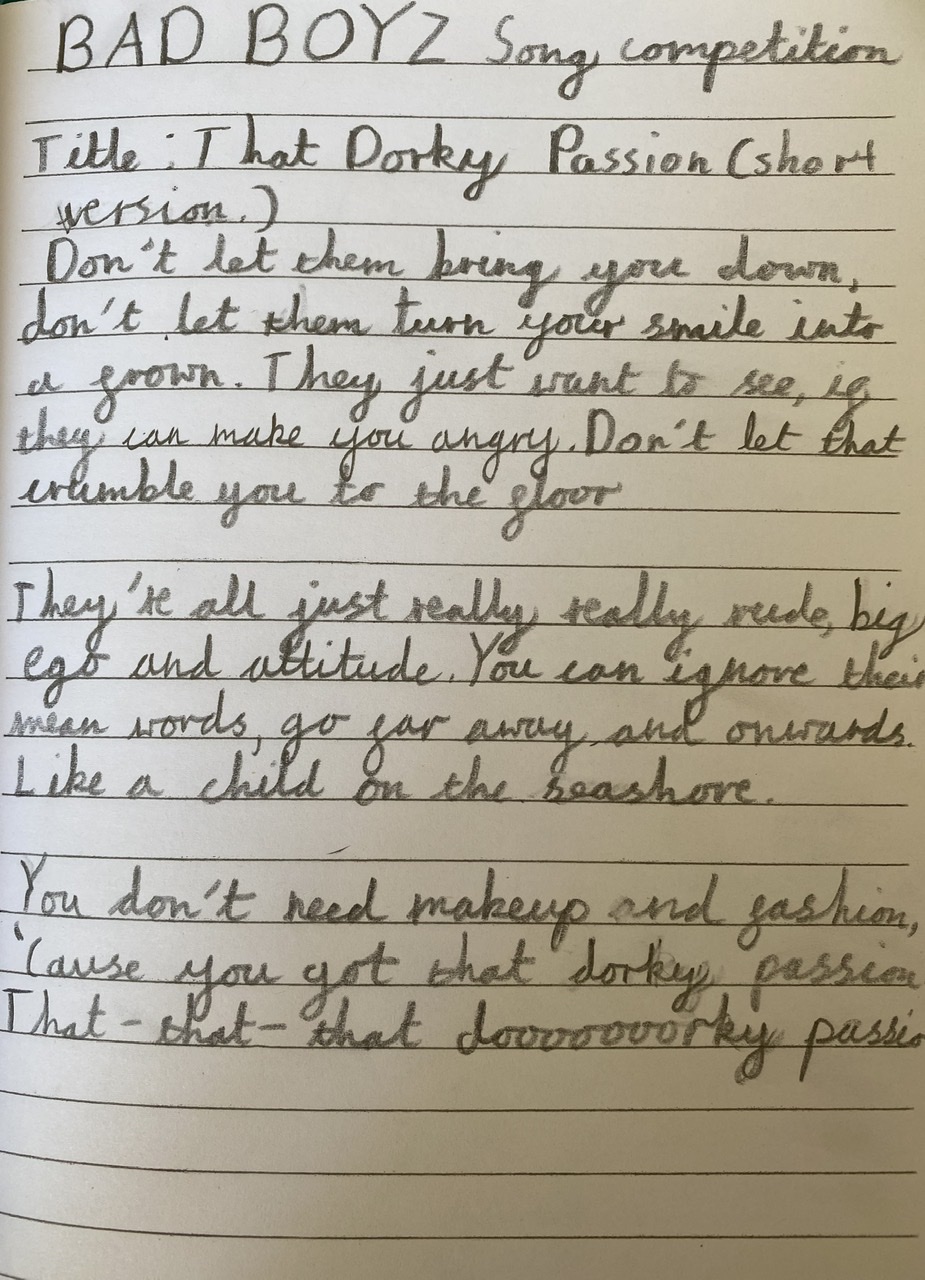 BAD BOYZ Song competition
Title : That Dorky Passion (short
version.)
Don't let them bring you down,
don't let them turn your smile into
a frown. They just want to see, if
they can make you angry. Don't let that
crumble you to the floor
They're all just really really rude, big
ego and attitude. You can ignore their
mean words, go far away and onwards.
Like a child on the seashore.
You don't need makeup and fashion,
'Cause you got that dorky passion
That - that - that dooooooorky passio